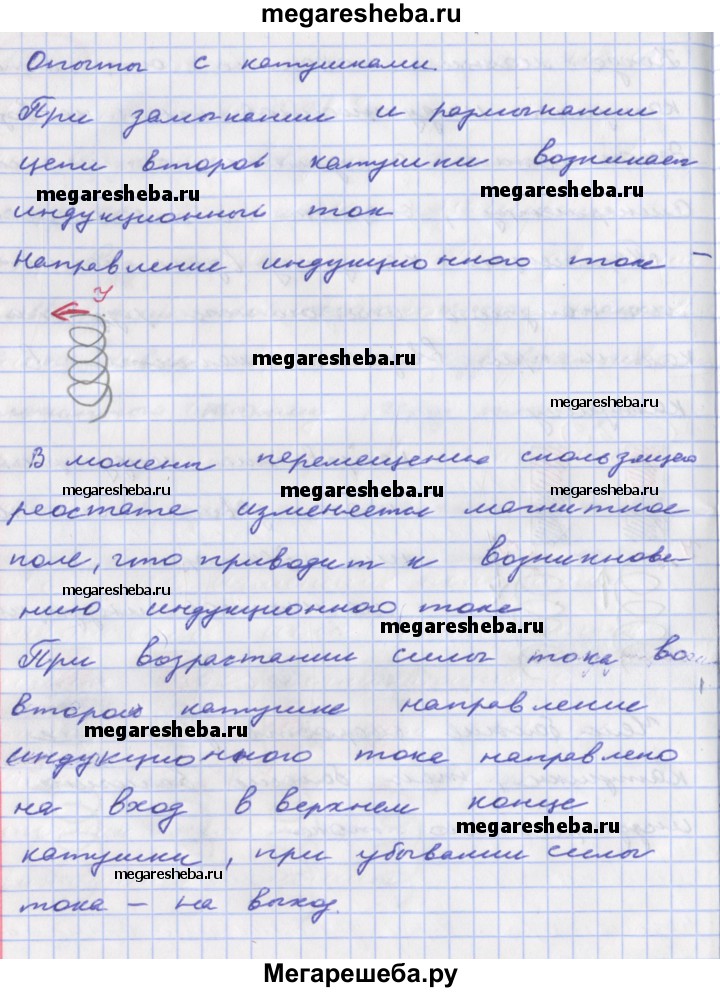 megaresheba.ru
Опыты с катушками.
При замыкании и размыкании
цепи второй катушки возникает
megaresheba.ru
megaresheba.ru
индукционный ток
Направление индукционного тока –
megaresheba.ru
megaresheba.ru
В момент перемещения скользящего
megaresheba.ru
megaresheba.ru
megaresheba.ru
реостата изменяется магнитное
поле, что приводит к возникнове-
megaresheba.ru
нию индукционного тока
megaresheba.ru
При возрастании силы тока во
второй катушке направление
megaresheba.ru
индукционного тока направлено
на вход в верхнем конце
megaresheba.ru
катушки, при убывании силы
megaresheba.ru
тока – на выход.
Мегарешеба.ру